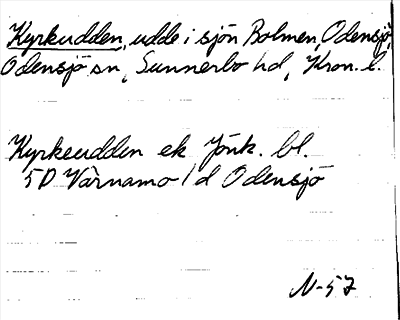 Kyrkudden, udde i sjön Bolmen, Odensjö,
Odensjö sn, Sunnerbo hd, Kron. l.
Kyrkeudden ek Jönk. bl.
5D Värnamo 1d Odensjö
N-57